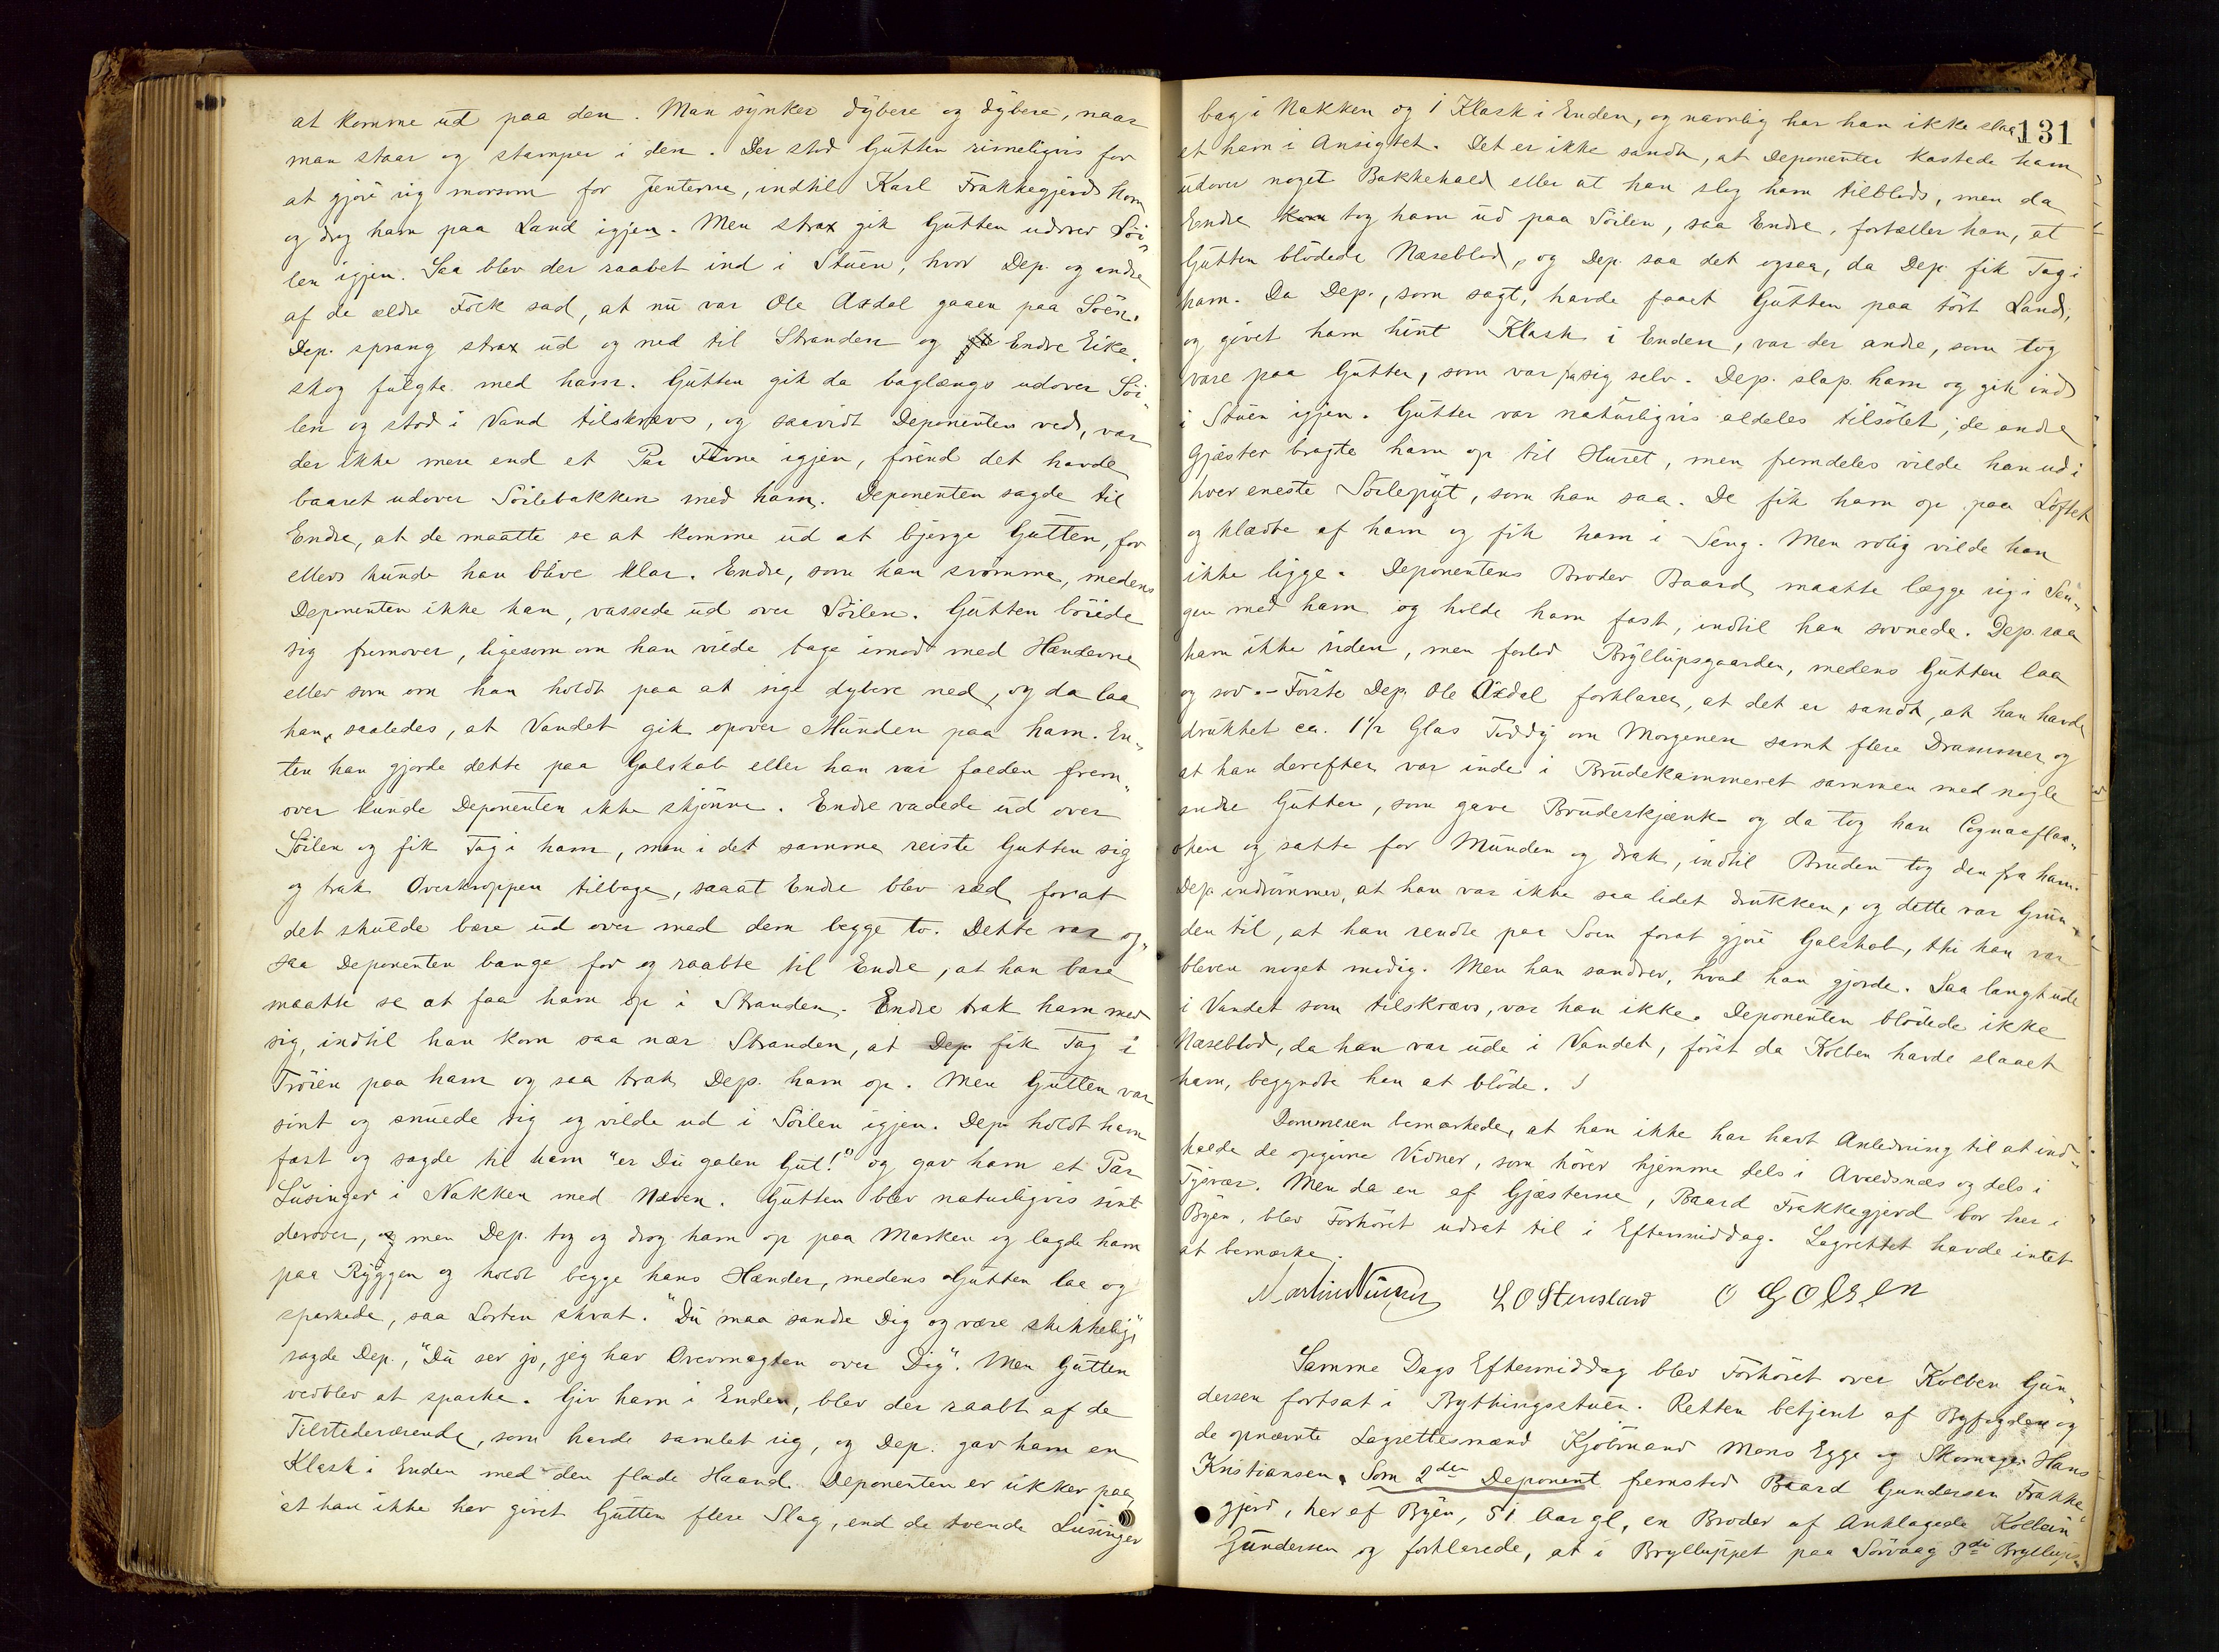 at komme ud paa den. Man synker dybere og dybere, naar
man staar og stamper i den. Der stod Gutten rimeligvis for
at gjöre sig morsom for Jenterne, indtil Karl Frakkegjerd kom
og drog ham paa Land igjen. Men strax gik Gutten udover Söi-
len igjen. Saa blev der raabet ind i Stuen, hvor Dep. og andre
af de ældre Folk sad, at nu var Ole Axdal gaaen paa Söen.
Dep. sprang strax ud og ned til Stranden og Endre Eike-
skog fulgte med ham. Gutten gik da baglængs udover Söi-
len og stod i Vand tilskrævs, og saavidt Deponenten ved, var
der ikke mere end et Par Favne igjen, förend det havde
baaret udover Söilebakken med ham. Deponenten sagde til
Endre, at de maatte se at komme ud at bjerge Gutten, for
ellers kunde han blive klar. Endre, som kan svömme, medens
Deponenten ikke kan, vassede ud over Söilen. Gutten böiede
sig fremover, ligesom om han vilde tage imod med Hænderne
eller som om han holdt paa at sige dybere ned, og da laa
han saaledes, at Vandet gik opover Munden paa ham. En-
ten han gjorde dette paa Galskab eller han var falden frem-
over kunde Deponenten ikke skjönne. Endre vadede ud over
Söilen og fik Tag i ham, men i det samme reiste Gutten sig
og trak Overkroppen tilbage, saaat Endre blev ræd forat
det skulde bære ud over med dem begge to. Dette var og-
saa Deponenten bange for og raabte til Endre, at han bare
maatte se at faa ham op i Stranden. Endre trak ham med
sig, indtil han kom saa nær Stranden, at Dep fik Tag i
Tröien paa ham og saa trak Dep. ham op. Men Gutten var
sint og snuede sig og vilde ud i Söilen igjen. Dep holdt ham
fast og sagde til ham "er Du galen Gut!" og gav ham et Par
Lusinger i Nakken med Næven. Gutten blev naturligvis sint
derover, men Dep. tog og drog ham op paa Marken og lagde ham
paa Ryggen og holdt begge hans Hænder, medens Gutten laa og
sparkede, saa Lorten skvat. "Du maa sandse Dig og være skikkelig",
sagde Dep., "Du ser jo, jeg har Overmagten over Dig". Men Gutten
vedblev at sparke. Giv ham i Enden, blev der raabt af de
Tilstedeværende, som havde samlet sig, og Dep. gav ham en
Klask i Enden med den flade Haand. Deponenten er sikker paa,
at han ikke har givet Gutten flere Slag, end de tvende Lusinger
131
bag i Nakken og 1 Klask i Enden, og navnlig har han ikke slaa-
et ham i Ansigtet. Det er ikke sandt, at Deponenten kastede ham
udover noget Bakkehald eller at han slog ham tilblods, men da
Endre tog ham ud paa Söilen, saa Endre, fortæller han, at
Gutten blödede Næseblod, og Dep. saa det ogsaa, da Dep. fik Tag i
ham. Da Dep., som sagt, havde faaet Gutten paa tört Land,
og givet ham hint Klask i Enden, var der andre, som tog
vare paa Gutten, som var fra sig selv. Dep. slap ham og gik ind
i Stuen igjen. Gutten var naturligvis aldeles tilsölet; de andre
Gjæster bragte ham op til Huset, men fremdeles vilde han ud i
hver eneste Söilepyt, som han saa. De fik ham op paa Loftet
og klædte af ham og fik ham i Seng. Men rolig vilde han
ikke ligge. Deponentens Broder Baard maatte lægge sig i Sen-
gen med ham og holde ham fast, indtil han sovnede. Dep. saa
ham ikke siden, men forlod Bryllupsgaarden, medens Gutten laa
og sov. - Förste Dep. Ole Axdal forklarer, at det er sandt, at han havde
drukket ca. 1 1/2 Glas Toddy om Morgenen samt flere Drammer og
at han derefter var inde i Brudekammeret sammen med nogle
andre Gutter, som gave Brudeskjænk og da tog han Cognacflas-
ken og satte for Munden og drak, indtil Bruden tog den fra ham.
Dep. indrömmer, at han var ikke saa lidet drukken, og dette var Grun-
den til, at han rendte paa Söen forat gjöre Galskab, thi han var
bleven noget modig. Men han sandser, hvad han gjorde. Saa langt ude
i Vandet som tilskrævs, var han ikke. Deponenten blödede ikke
Næseblod, da han var ude i Vandet, först da Kolben havde slaaet
ham, begyndte han at blöde.
Dommeren bemærkede, at han ikke har havt Anledning til at ind-
kalde de opgivne Vidner, som hörer hjemme dels i Avaldsnæs og dels i
Tysvær. Men da en af Gjæsterne, Baard Frakkegjerd bor her i
Byen, blev Forhöret udsat til i Eftermiddag. Lagrettet havde intet
at bemærke.
L O Stensland O G Olsen
Samme Dags Eftermiddag blev Forhöret over Kolben Gun-
dersen fortsat i Bythingsstuen. Retten betjent af Byfogden og
de opnævnte Lagrettesmænd Kjöbmand Mons Egge og Skomager Hans
Kristiansen. Som 2den Deponent fremstod Baard Gundersen Frakke-
gjerd, her af Byen, 51 Aar gl., en Broder af Anklagede Kolbein
Gundersen og forklarede, at i Brylluppet paa Sörvaag 3die Bryllups-